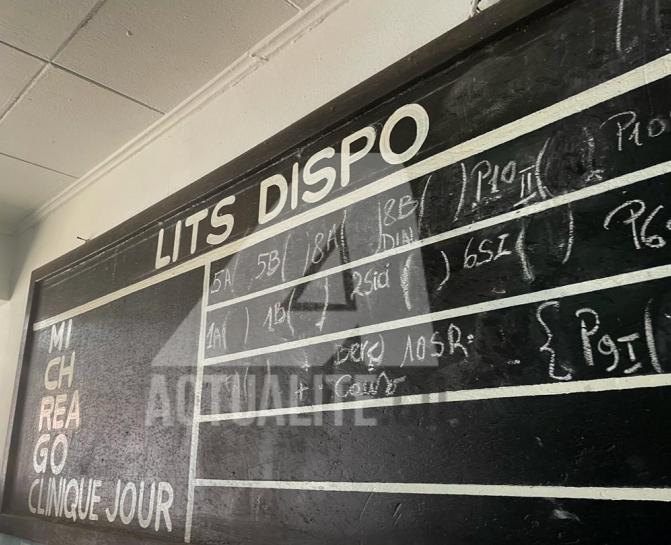 LITS DISPO
5A 5B( 18A( 18B( ) P10 II ( P10
DIN
MI 1A( ) 1B( ) 2Sici ( ) 6SI( ) P6
CH + Berç 10SR - { P9 I (
REA
GO
CLINIQUE JOUR
ACTUALITE